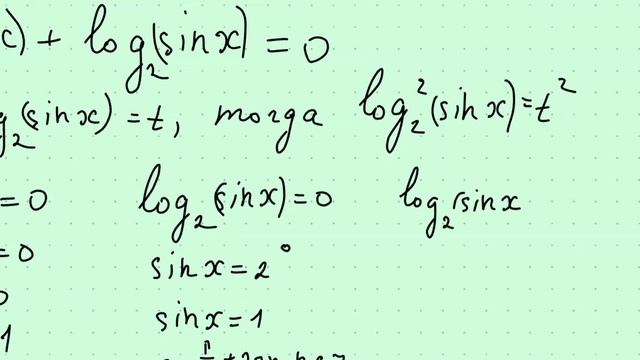 ) + log₂(sin x) = 0
(sin x) = t, тогда log₂²(sin x) = t²
= 0 log₂(sin x) = 0 log₂(sin x
= 0 sin x = 2⁰
sin x = 1
1